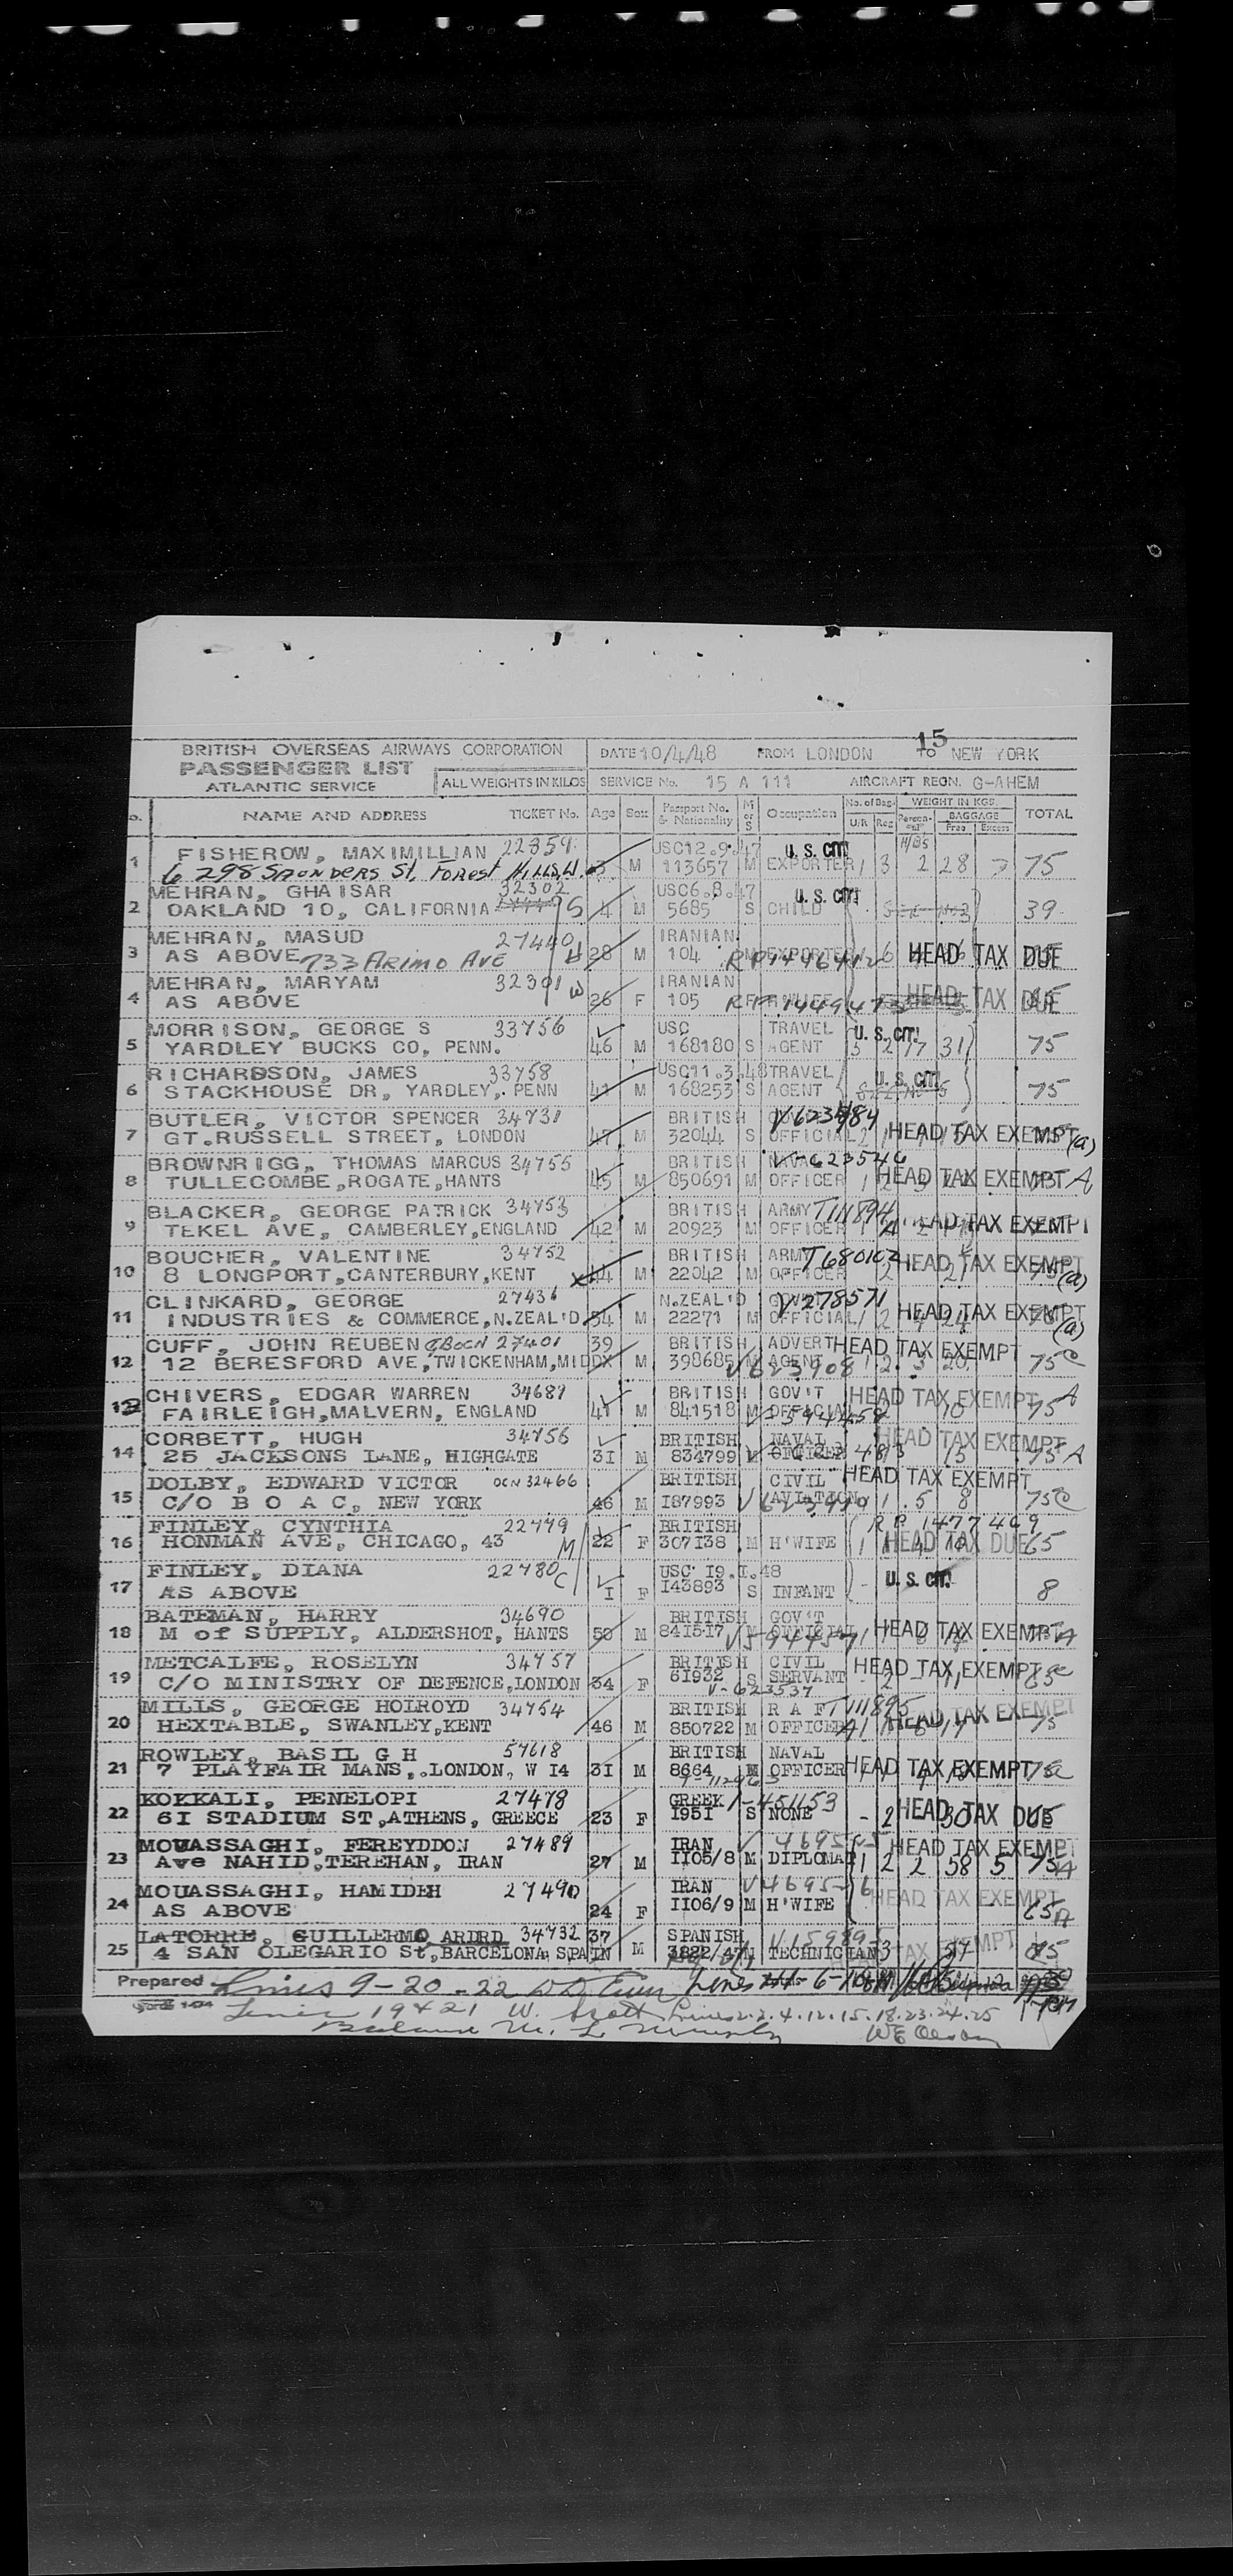 15
BRITISH OVERSEAS AIRWAYS CORPORATION DATE 10/4/48 FROM LONDON TO NEW YORK
PASSENGER LIST
ATLANTIC SERVICE ALL WEIGHTS IN KILOS SERVICE No. 15 A 111 AIRCRAFT REGN. G-AHEM
NAME AND ADDRESS TICKET No. Age Sex Passport No. & Nationality M or S Occupation No. of Bag. U/R Reg WEIGHT IN KGS. BAGGAGE Free Excess TOTAL
1 FISHEROW, MAXIMILLIAN 22359 USC12.9.47 U. S. CIT.
6 298 SAUNDERS St. FOREST HILLS M 113657 M EXPORTER 1 3 2 28 75
MEHRAN, GHAISAR 32302 USC6.8.47 U. S. CIT.
2 OAKLAND 10, CALIFORNIA S 4 M 5685 S CHILD 39
MEHRAN, MASUD 27440 IRANIAN
3 AS ABOVE 733 ARIMO AVE H 28 M 104 M EXPORTER HEAD TAX DUE
MEHRAN, MARYAM 32301 IRANIAN
4 AS ABOVE W 26 F 105 HEAD TAX DUE
MORRISON, GEORGE S 33756 USC TRAVEL U. S. CIT.
5 YARDLEY BUCKS CO, PENN. 46 M 168180 S AGENT 3 2 17 31 75
RICHARDSON, JAMES 33758 USC11.3.48 TRAVEL U. S. CIT.
6 STACKHOUSE DR, YARDLEY, PENN 41 M 168253 S AGENT 75
BUTLER, VICTOR SPENCER 34731 BRITISH
7 GT.RUSSELL STREET, LONDON 47 M 32044 S OFFICIAL HEAD TAX EXEMPT (a)
BROWNRIGG, THOMAS MARCUS 34755 BRITISH NAVAL V-623546
8 TULLECOMBE,ROGATE,HANTS 45 M 850691 M OFFICER HEAD TAX EXEMPT A
BLACKER, GEORGE PATRICK 34753 BRITISH ARMY
9 TEKEL AVE, CAMBERLEY,ENGLAND 42 M 20923 M OFFICER HEAD TAX EXEMPT
BOUCHER, VALENTINE 34752 BRITISH ARMY T680102
10 8 LONGPORT,CANTERBURY,KENT 44 M 22042 M OFFICER HEAD TAX EXEMPT (a)
CLINKARD, GEORGE 27436 N.ZEAL'D V278571
11 INDUSTRIES & COMMERCE,N.ZEAL'D 54 M 22271 M OFFICIAL HEAD TAX EXEMPT (a)
CUFF, JOHN REUBEN 27401 39 BRITISH ADVERT HEAD TAX EXEMPT
12 12 BERESFORD AVE,TWICKENHAM,MIDDX M 398685 M AGENT V623908 75
CHIVERS, EDGAR WARREN 34689 BRITISH GOV'T HEAD TAX EXEMPT
13 FAIRLEIGH,MALVERN, ENGLAND 41 M 841518 M OFFICIAL 10 75 A
CORBETT, HUGH 34756 BRITISH NAVAL HEAD TAX EXEMPT
14 25 JACKSONS LANE, HIGHGATE 31 M 834799 OFFICER 15 75 A
DOLBY, EDWARD VICTOR OCN 32466 BRITISH CIVIL HEAD TAX EXEMPT
15 C/O B O A C, NEW YORK 46 M 187993 AVIATION 1 5 8 75
FINLEY, CYNTHIA 22779 BRITISH R P 1477469
16 HONMAN AVE, CHICAGO, 43 M 22 F 307138 M H'WIFE HEAD TAX DUE 65
FINLEY, DIANA 22780 USC 19.1.48 U. S. CIT.
17 AS ABOVE C 1 F 143893 S INFANT 8
BATEMAN, HARRY 34690 BRITISH GOV'T
18 M of SUPPLY, ALDERSHOT, HANTS 50 M 841517 M OFFICIAL V594457 HEAD TAX EXEMPT A
METCALFE, ROSELYN 34757 BRITISH CIVIL HEAD TAX EXEMPT
19 C/O MINISTRY OF DEFENCE,LONDON 34 F 61932 S SERVANT V-623537 65
MILLS, GEORGE HOLROYD 34754 BRITISH R A F T111895
20 HEXTABLE, SWANLEY,KENT 46 M 850722 M OFFICER HEAD TAX EXEMPT 75
ROWLEY, BASIL G H 57618 BRITISH NAVAL
21 7 PLAYFAIR MANS,.LONDON, W 14 31 M 8664 M OFFICER HEAD TAX EXEMPT 75
KOKKALI, PENELOPI 27478 GREEK V-451153
22 61 STADIUM ST,ATHENS, GREECE 23 F 1951 S NONE - 2 30 HEAD TAX DUE
MOUASSAGHI, FEREYDDON 27489 IRAN
23 Ave NAHID,TEREHAN, IRAN 27 M 1105/8 M DIPLOMAT 1 2 2 58 5 HEAD TAX EXEMPT 75 A
MOUASSAGHI, HAMIDEH 27490 IRAN
24 AS ABOVE 24 F 1106/9 M H'WIFE HEAD TAX EXEMPT 65 A
LATORRE, GUILLERMO ARDRD 34732 37 SPANISH
25 4 SAN OLEGARIO St,BARCELONA, SPAIN M 3222/47 TECHNICIAN 3 TAX EXEMPT
Prepared Lines 9-20-22 Lines
Lines 19 & 21 W. Scott Lines 2.3.4.12.15.18.23.24.25
Balance